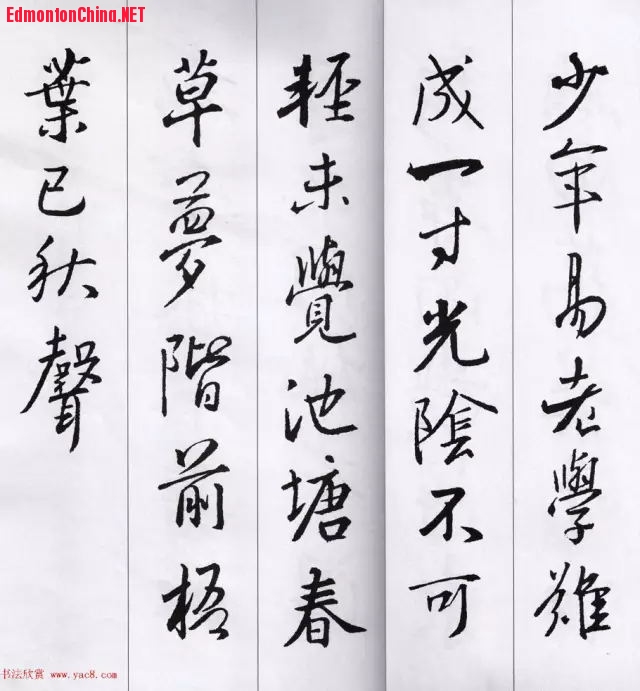 EdmontonChina.NET
少年易老學難
成一寸光陰不可
輕未覺池塘春
草夢階前梧
葉已秋聲
书法欣赏 www.yac8.com